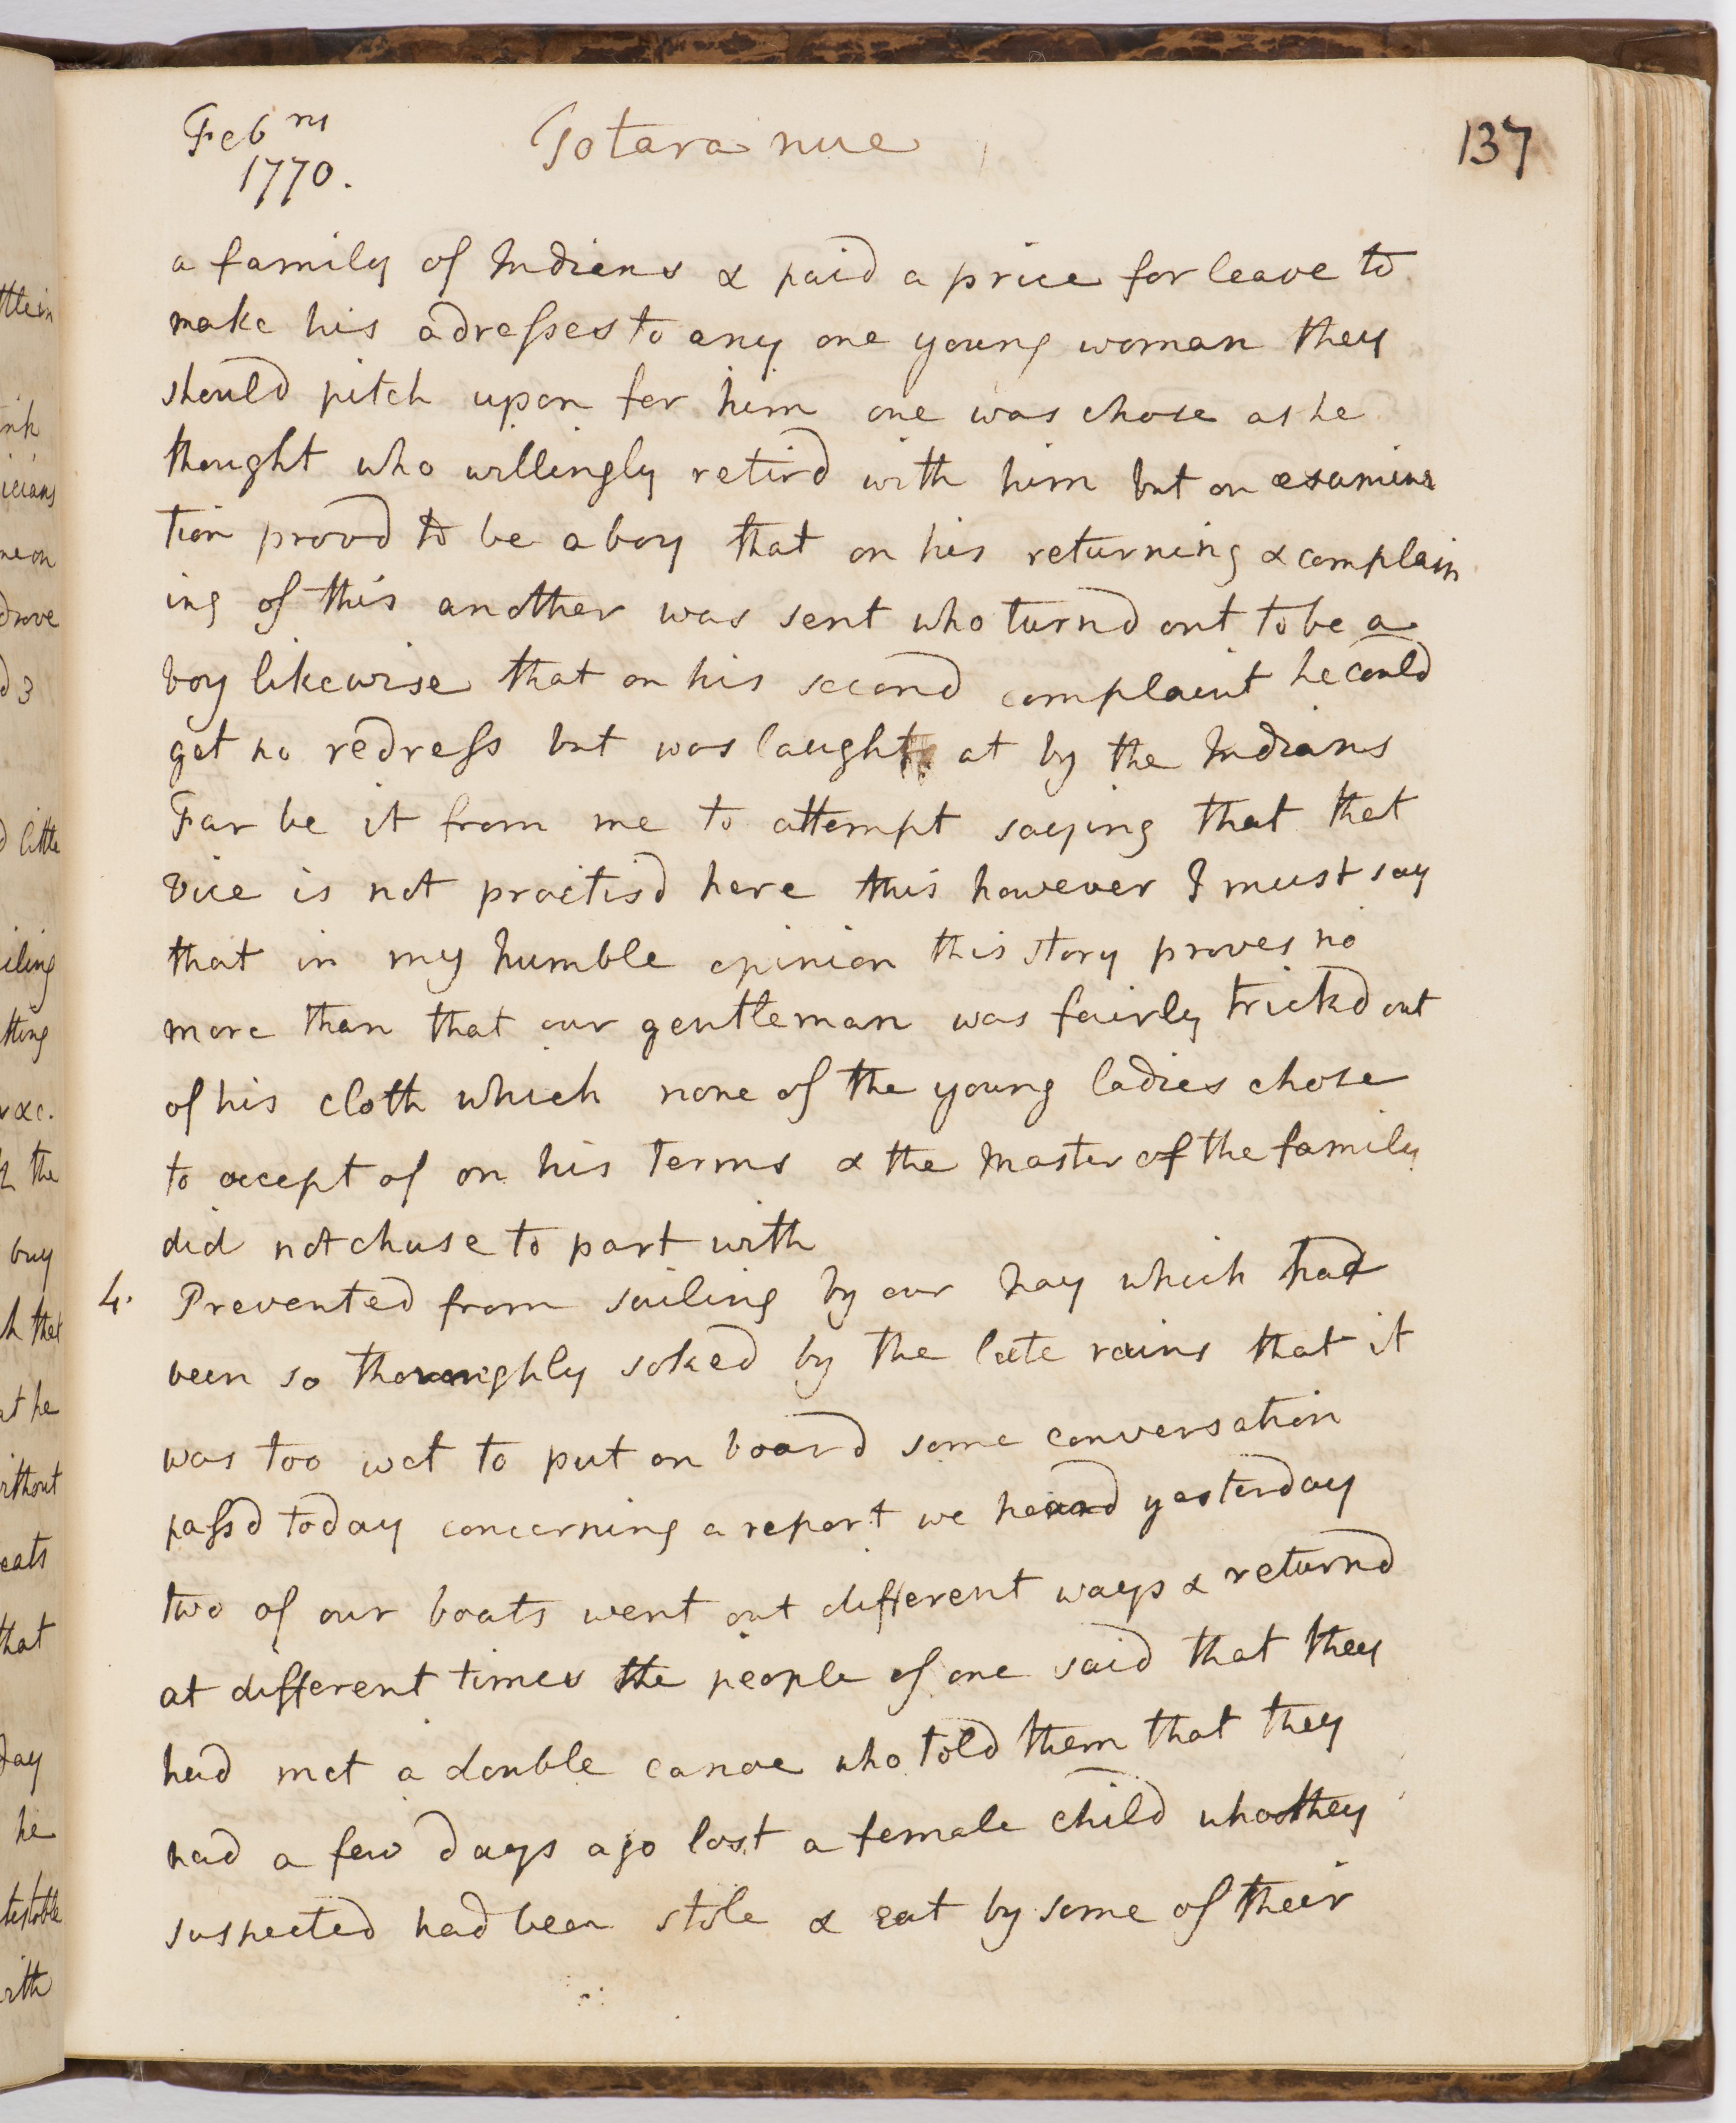 Feb ry
1770.
Totara nue
137
a family of Indians & paid a price for leave to
make his adresses to any one young woman they
should pitch upon for him one was chose as he
thought who willingly retird with him but on examina
tion provd to be a boy that on his returning & complain
ing of this another was sent who turnd out to be a
boy likewise that on his second complaint he could
get no redress but was laught at by the Indians
Far be it from me to attempt saying that that
Vice is not practisd here this however I must say
that in my humble opinion this story proves no
more than that our gentleman was fairly trickd out
of his cloth which none of the young ladies chose
to accept of on his terms & the Master of the family
did not chuse to part with
4. Prevented from sailing by our hay which had
been so thoroughly soked by the late rains that it
was too wet to put on board some conversation
passd today concerning a report we heard yesterday
two of our boats went out different ways & returnd
at different times the people of one said that they
had met a double canoe who told them that they
had a few days ago lost a female child who they
suspected had been stole & eat by some of their